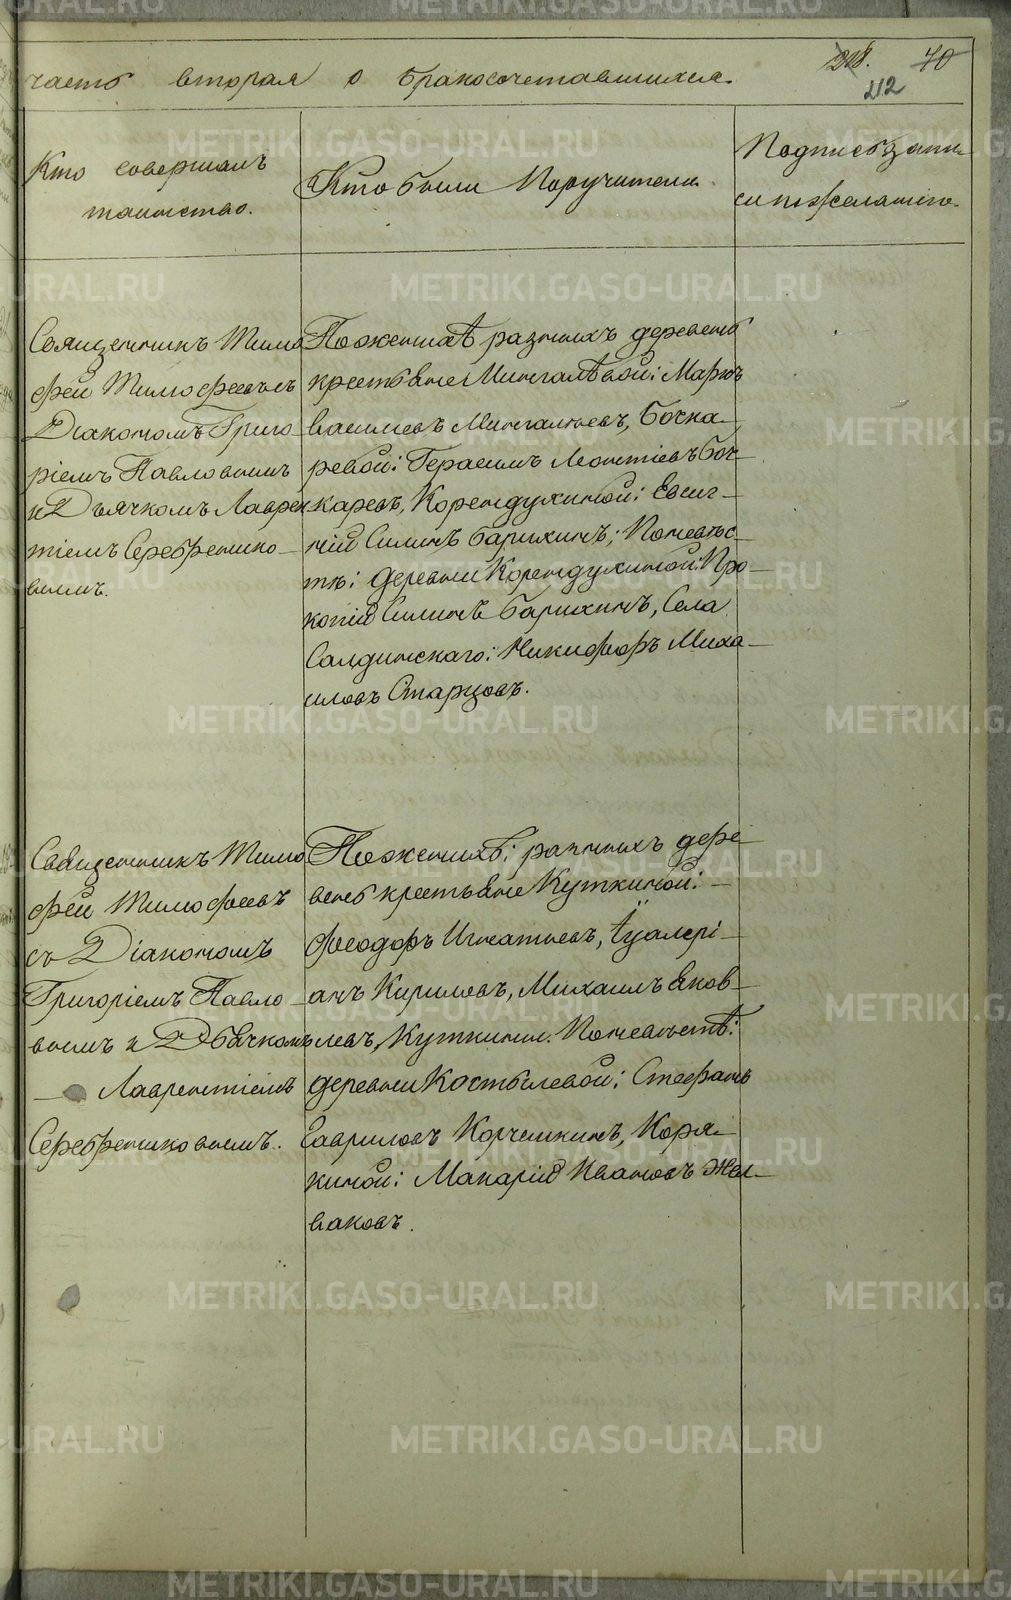 часть вторая о бракосочетавшихся.
208. 70
212
Кто совершалъ
таинство.
Кто были Поручители.
Подпись запи-
си по желанiю.
Священникъ Тимо
фей Тимофеевъ съ
Дiакономъ Григо-
рiемъ Павловымъ
и Дьячкомъ Лаврен
тiемъ Серебренико-
вымъ.
По женихѣ разныхъ деревень
крестьяне Мингалѣвой: Маркъ
Васильевъ Мингалевъ, Бочка-
ревой: Герасимъ Леонтiевъ Боч-
каревъ, Корендухиной: Евсиг-
нiй Силинъ Барихинъ; По невѣс-
тѣ: деревни Корендухиной: Про-
копiй Силинъ Барихинъ, Села
Салдинскаго: Никифоръ Миха-
иловъ Старцовъ.
Священникъ Тимо
фей Тимофеевъ
съ Дiакономъ
Григорiемъ Павло-
вымъ и Дьячкомъ
Лаврентiемъ
Серебрениковымъ.
По женихѣ: разныхъ дере-
вень крестьяне Куткиной:
Феодоръ Игнатьевъ, Ѵалерi-
анъ Кириловъ, Михаилъ Яков-
левъ, Куткины. По невѣстѣ:
деревни Костылевой: Стефанъ
Гавриловъ Корчемкинъ, Коря-
киной: Макарiй Ивановъ Жел-
ваковъ.
METRIKI.GASO-URAL.RU